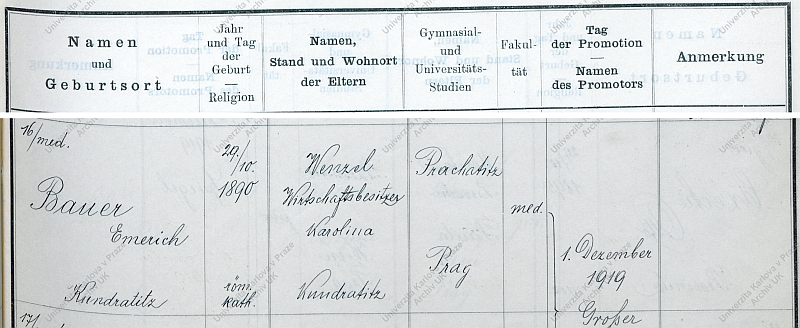 Namen
und
Geburtsort
Jahr
und Tag
der
Geburt
—
Religion
Namen,
Stand und Wohnort
der Eltern
Gymnasial-
und
Universitäts-
Studien
Fakul-
tät
Tag
der Promotion
—
Namen
des Promotors
Anmerkung
16/med.
Bauer
Emerich
Kundratitz
29./10.
1890
röm.
kath.
Wenzel
Wirtschaftsbesitzer
Karolina
Kundratitz
Prachatitz
Prag
med.
1. Dezember
1919
Großer
17/
Univerzita Karlova v Praze
Archiv UK